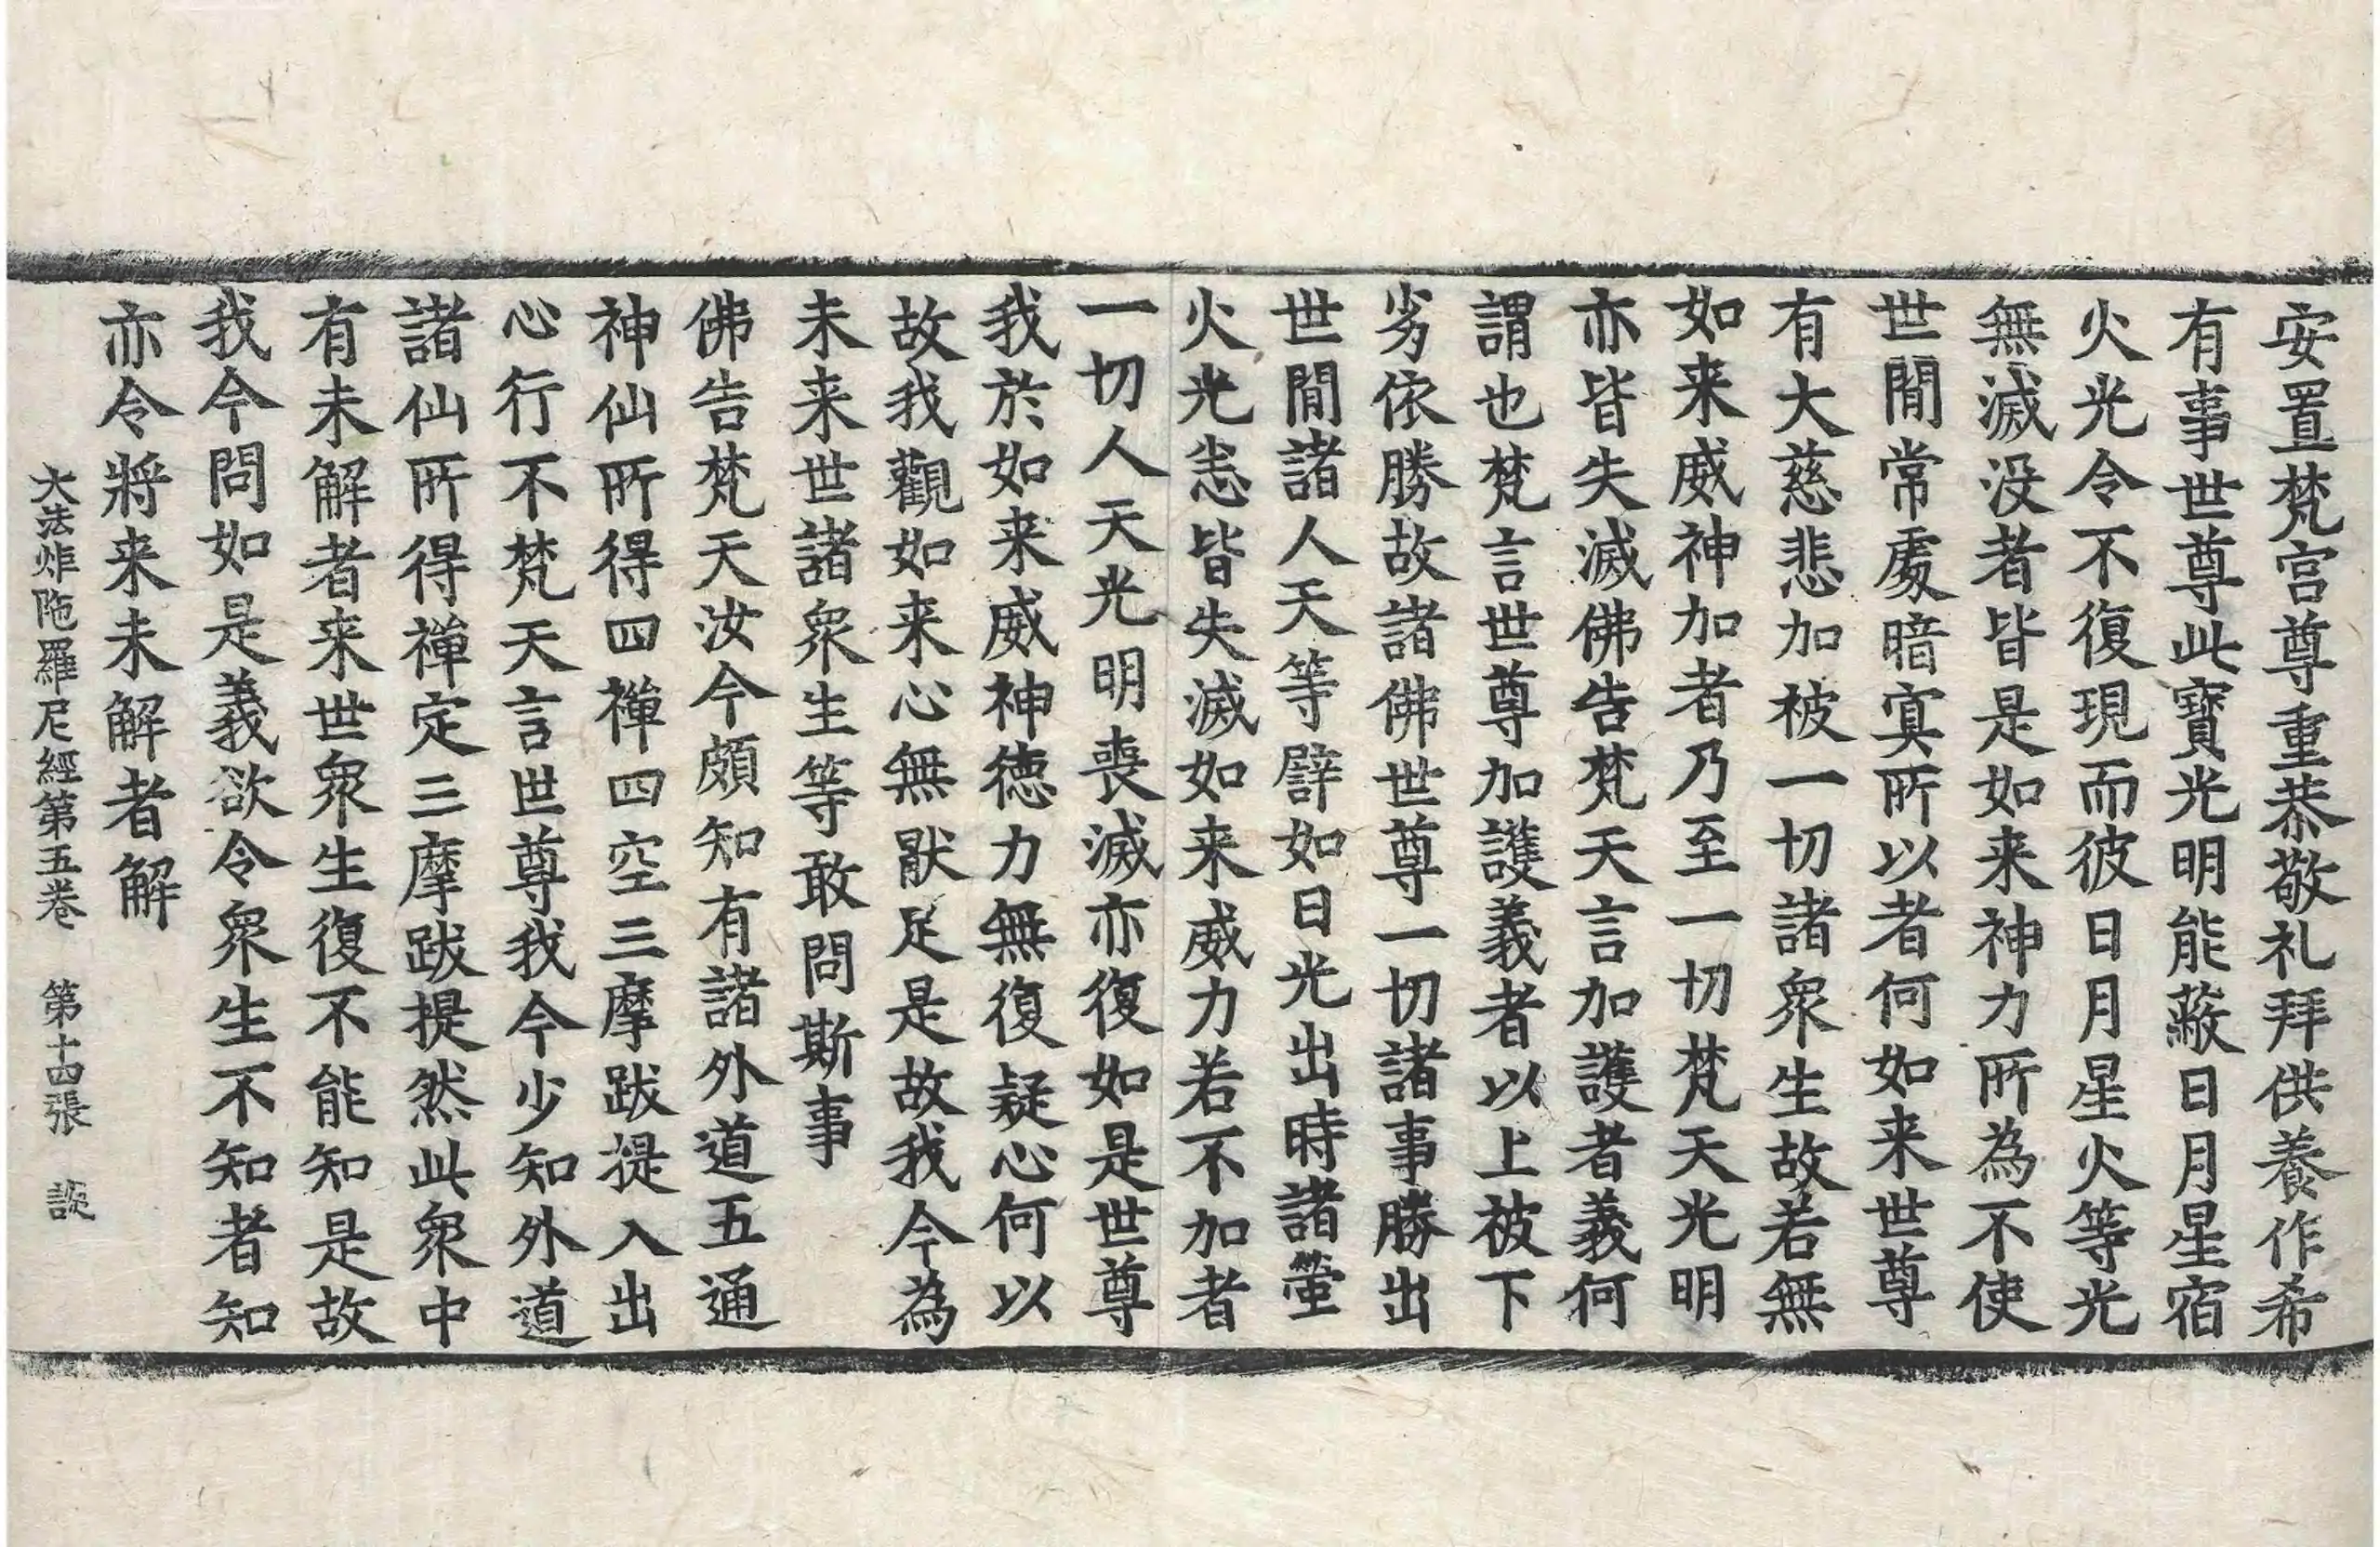 安置梵宮尊重恭敬礼拜供養作希
有事世尊此寶光明能蔽日月星宿
火光令不復現而彼日月星火等光
無滅没者皆是如来神力所為不使
世間常處暗冥所以者何如来世尊
有大慈悲加被一切諸衆生故若無
如来威神加者乃至一切梵天光明
亦皆失滅佛告梵天言加護者義何
謂也梵言世尊加護義者以上被下
劣依勝故諸佛世尊一切諸事勝出
世間諸人天等譬如日光出時諸螢
火光恙皆失滅如来威力若不加者
一切人天光明喪滅亦復如是世尊
我於如来威神德力無復疑心何以
故我觀如来心無猒足是故我今為
未来世諸衆生等敢問斯事
佛告梵天汝今頗知有諸外道五通
神仙所得四禪四空三摩跋提入出
心行不梵天言世尊我今少知外道
諸仙所得禪定三摩跋提然此衆中
有未解者来世衆生復不能知是故
我今問如是義欲令衆生不知者知
亦令將来未解者解
大法炬陁羅尼經第五卷 第十四張 談